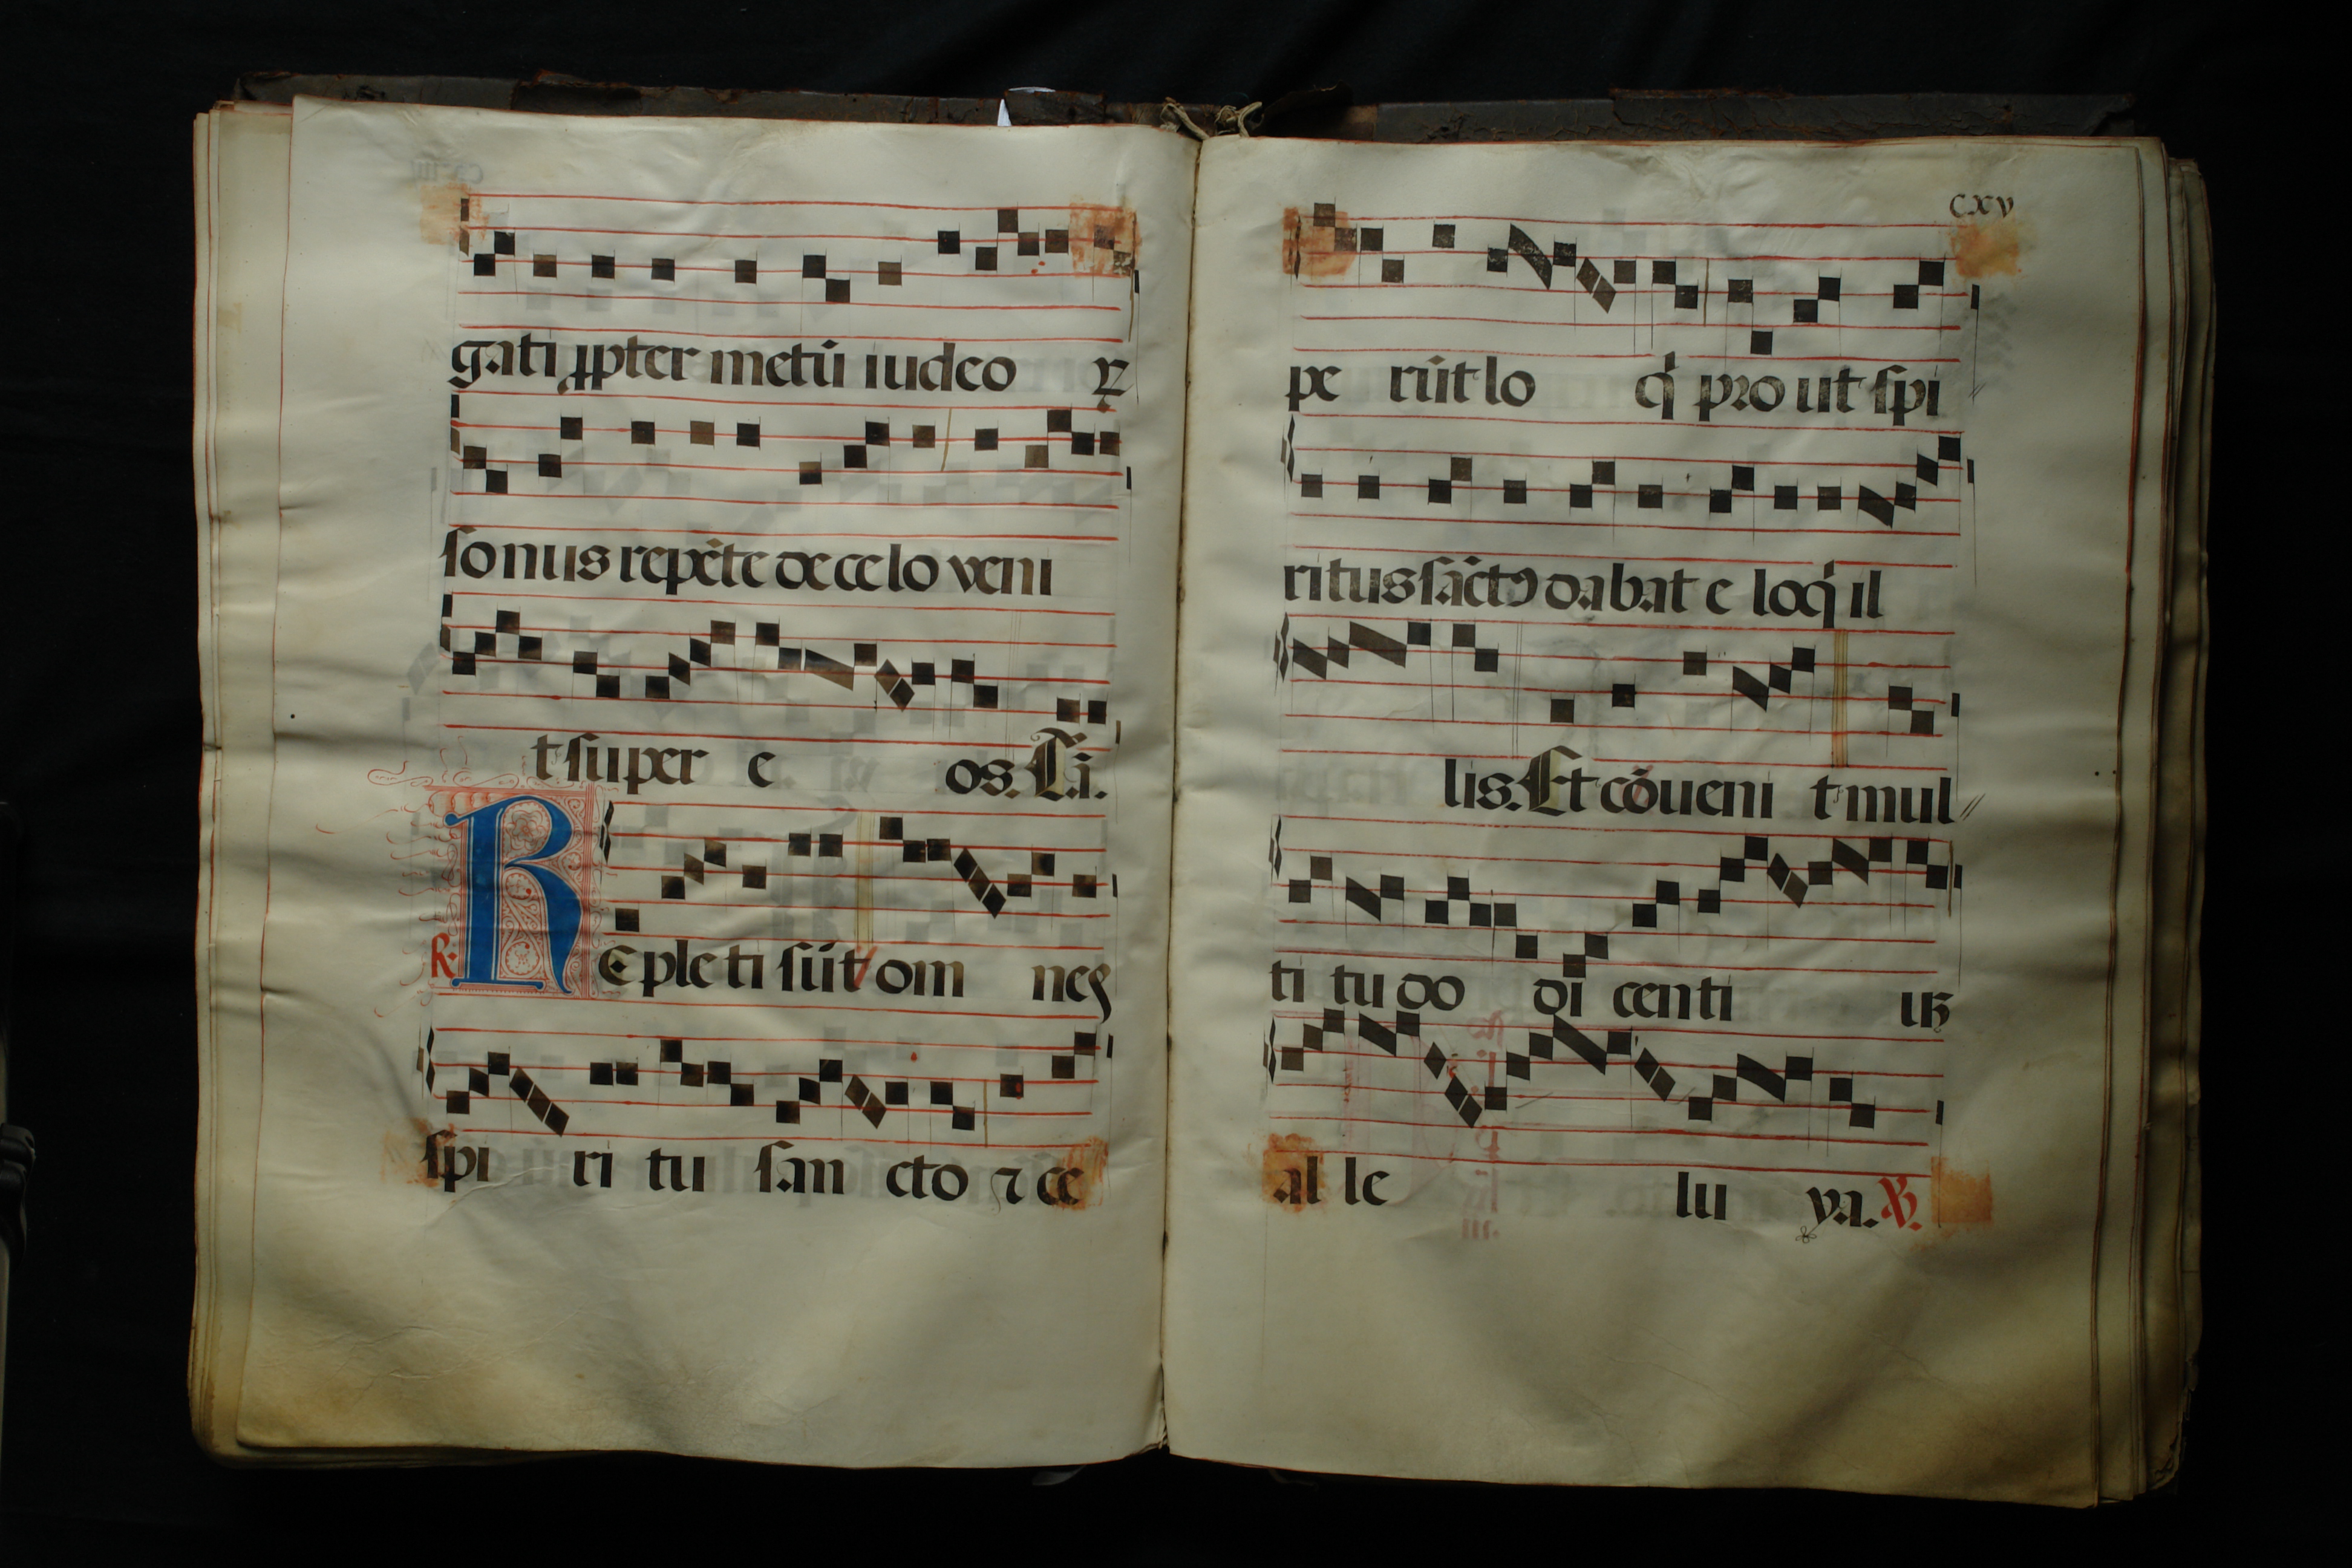 gati ꝓpter metū iudeo ꝝ
sonus repēte de celo veni
t super e os. Tā.
℟. REple ti sūt om nes
spi ri tu san cto ⁊ ce
cxv
pe rūt lo q̇ pro ut spi
ritus sāctꝰ dabat e loq̇ il
lis. Et cōueni t mul
ti tu do di centi uꝫ
al le lu ya. ℣.